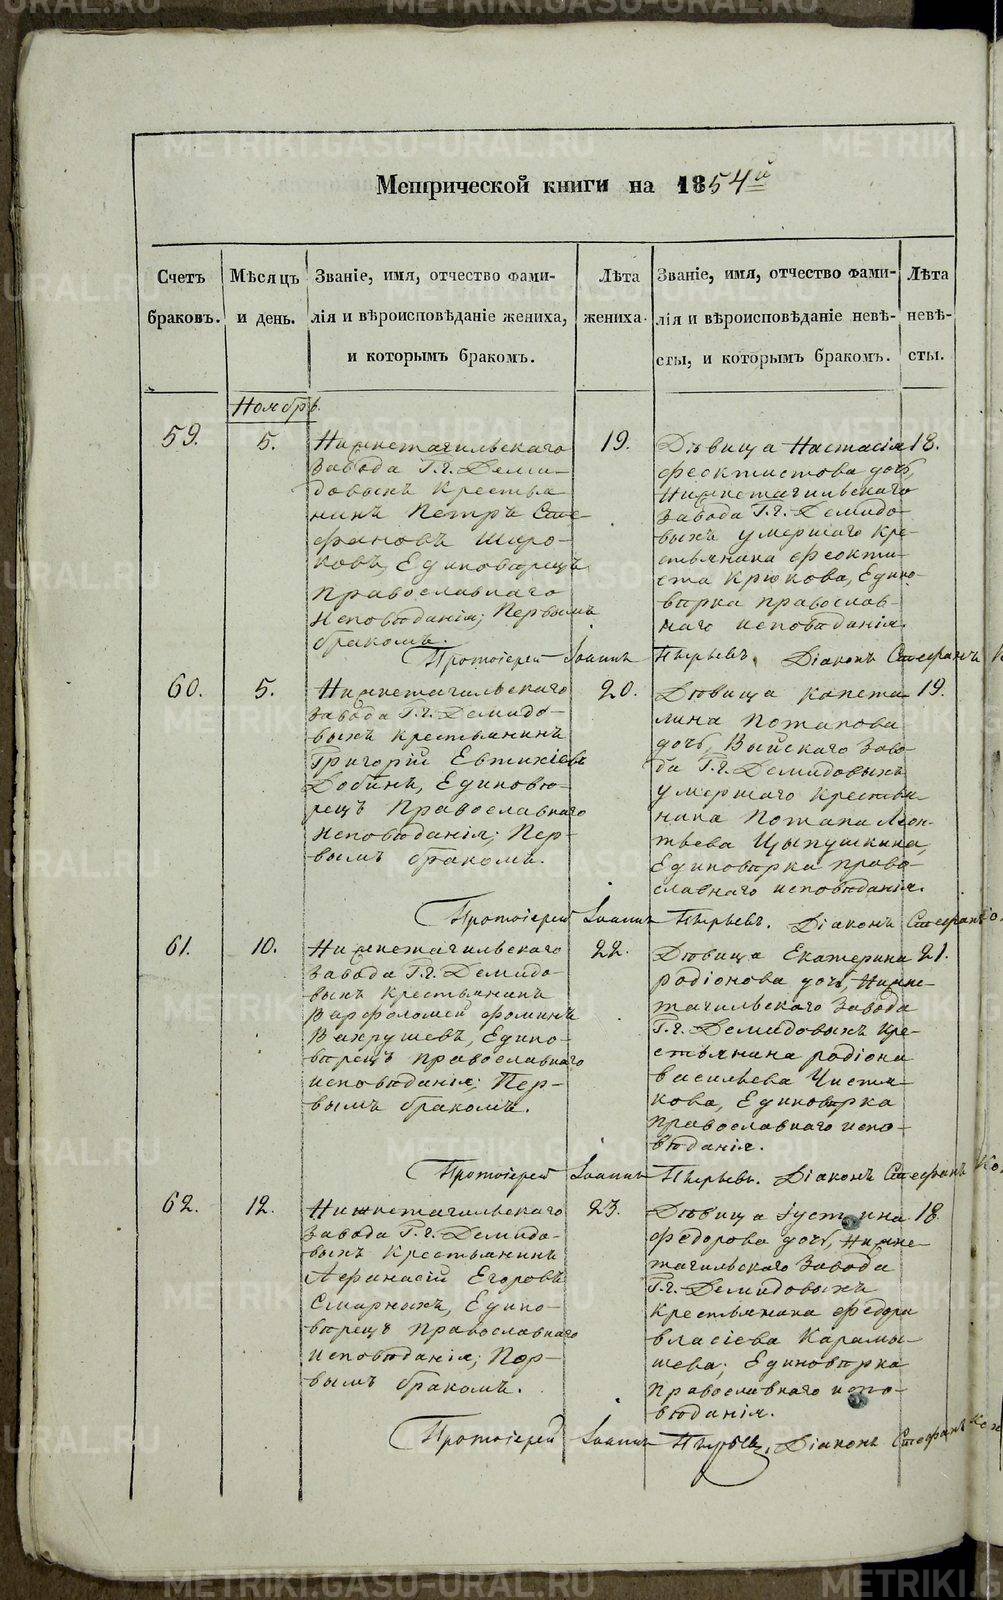 Метрической книги на 1854й
Счетъ браковъ.
Мѣсяцъ и день.
Званіе, имя, отчество фами-
лія и вѣроисповѣданіе жениха,
и которымъ бракомъ.
Лѣта жениха.
Званіе, имя, отчество фами-
лія и вѣроисповѣданіе невѣ-
сты, и которымъ бракомъ.
Лѣта невѣ-
сты.
Ноябрь.
59.
5.
Нижнетагильскаго
Завода Г.г. Деми-
довыхъ Крестья
нинъ Петръ Сте-
фановъ Широ-
ковъ, Единовѣрецъ
Православнаго
Исповѣданія; Первымъ
бракомъ.
19.
Дѣвица Настасія
Феоктистова дочь,
Нижнетагильскаго
Завода Г.г. Демидо-
выхъ умершаго Кре-
стьянина Феокти-
ста Крюкова, Едино-
вѣрка православ-
наго исповѣданія.
18.
Протоіерей Іоаннъ Пырьевъ. Діаконъ Стефанъ
60.
5.
Нижнетагильскаго
Завода Г.г. Демидо-
выхъ крестьянинъ
Григорій Евтихіевъ
Добинъ, Единовѣ-
рецъ Православнаго
Исповѣданія; Пер-
вымъ бракомъ.
20.
Дѣвица Капета
лина Потапова
дочь, Выйскаго Заво-
да Г.г. Демидовыхъ
умершаго Крестья
нина Потапа Леон-
тьева Цыпушкина,
Единовѣрка право-
славнаго исповѣданія.
19.
Протоіерей Іоаннъ Пырьевъ. Діаконъ Стефанъ
61.
10.
Нижнетагильскаго
Завода Г.г. Демидо-
выхъ Крестьянинъ
Варфоломей Фоминъ
Вахрушевъ, Едино-
вѣрецъ Православнаго
исповѣданія; Пер-
вымъ бракомъ.
22.
Дѣвица Екатерина
Родіонова дочь, Нижне-
тагильскаго Завода
Г.г. Демидовыхъ Кре-
стьянина Родіона
Васильева Чистя-
кова, Единовѣрка
Православнаго испо-
вѣданія.
21.
Протоіерей Іоаннъ Пырьевъ. Діаконъ Стефанъ
62.
12.
Нижнетагильскаго
Завода Г.г. Демидо-
выхъ Крестьянинъ
Афанасій Егоровъ
Смарныхъ, Едино-
вѣрецъ Православнаго
Исповѣданія; Пер-
вымъ бракомъ.
23.
Дѣвица Іустина
Федорова дочь, Нижне-
тагильскаго Завода
Г.г. Демидовыхъ
Крестьянина Федора
Власіева Карамы-
шева; Единовѣрка
Православнаго испо-
вѣданія.
18.
Протоіерей Іоаннъ Пырьевъ, Діаконъ Стефанъ
METRIKI.GASO-URAL.RU